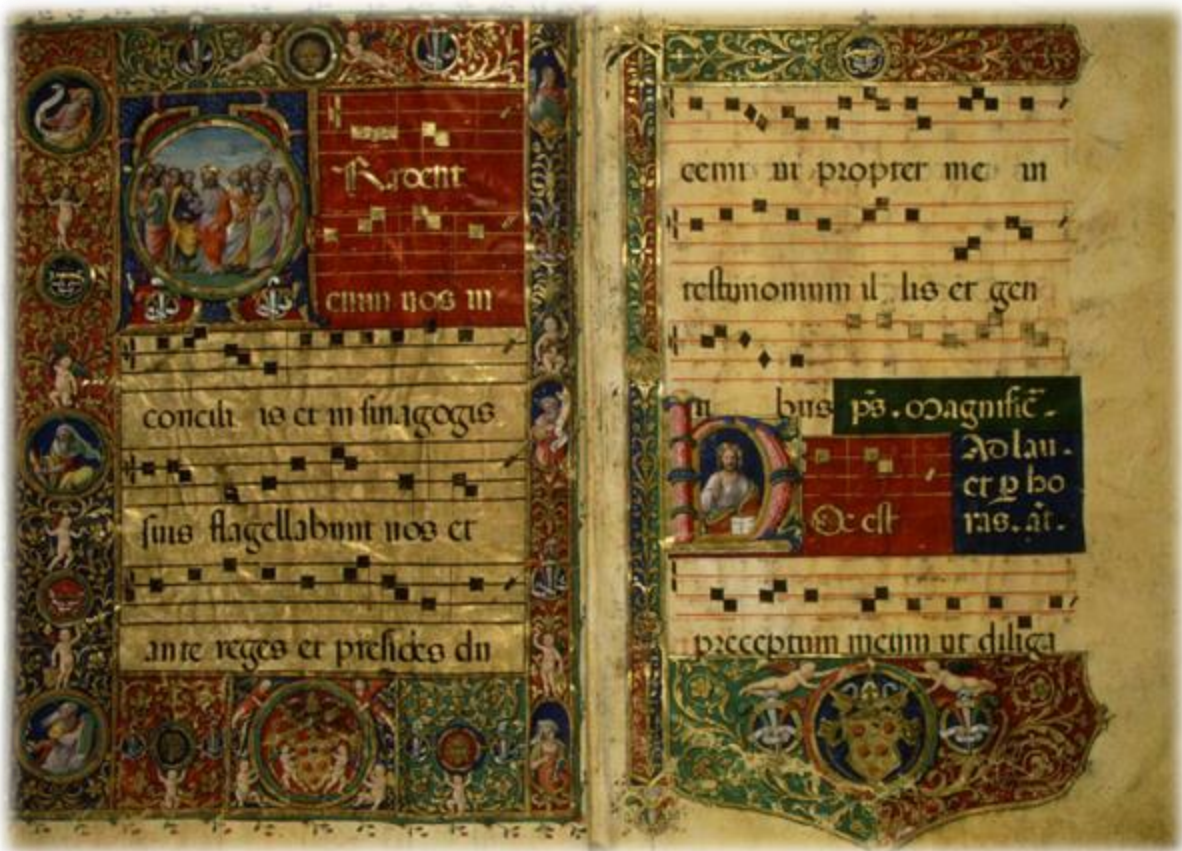 Tradent
enim uos in
concili is et in sinagogis
suis flagellabunt uos et
ante reges et presides du
cemi ni propter me in
testimonium il lis et gen
ti bus ps. Magnific̄.
Ad lau.
et p̱ ho
Hoc est ras. añ.
preceptum meum ut diliga